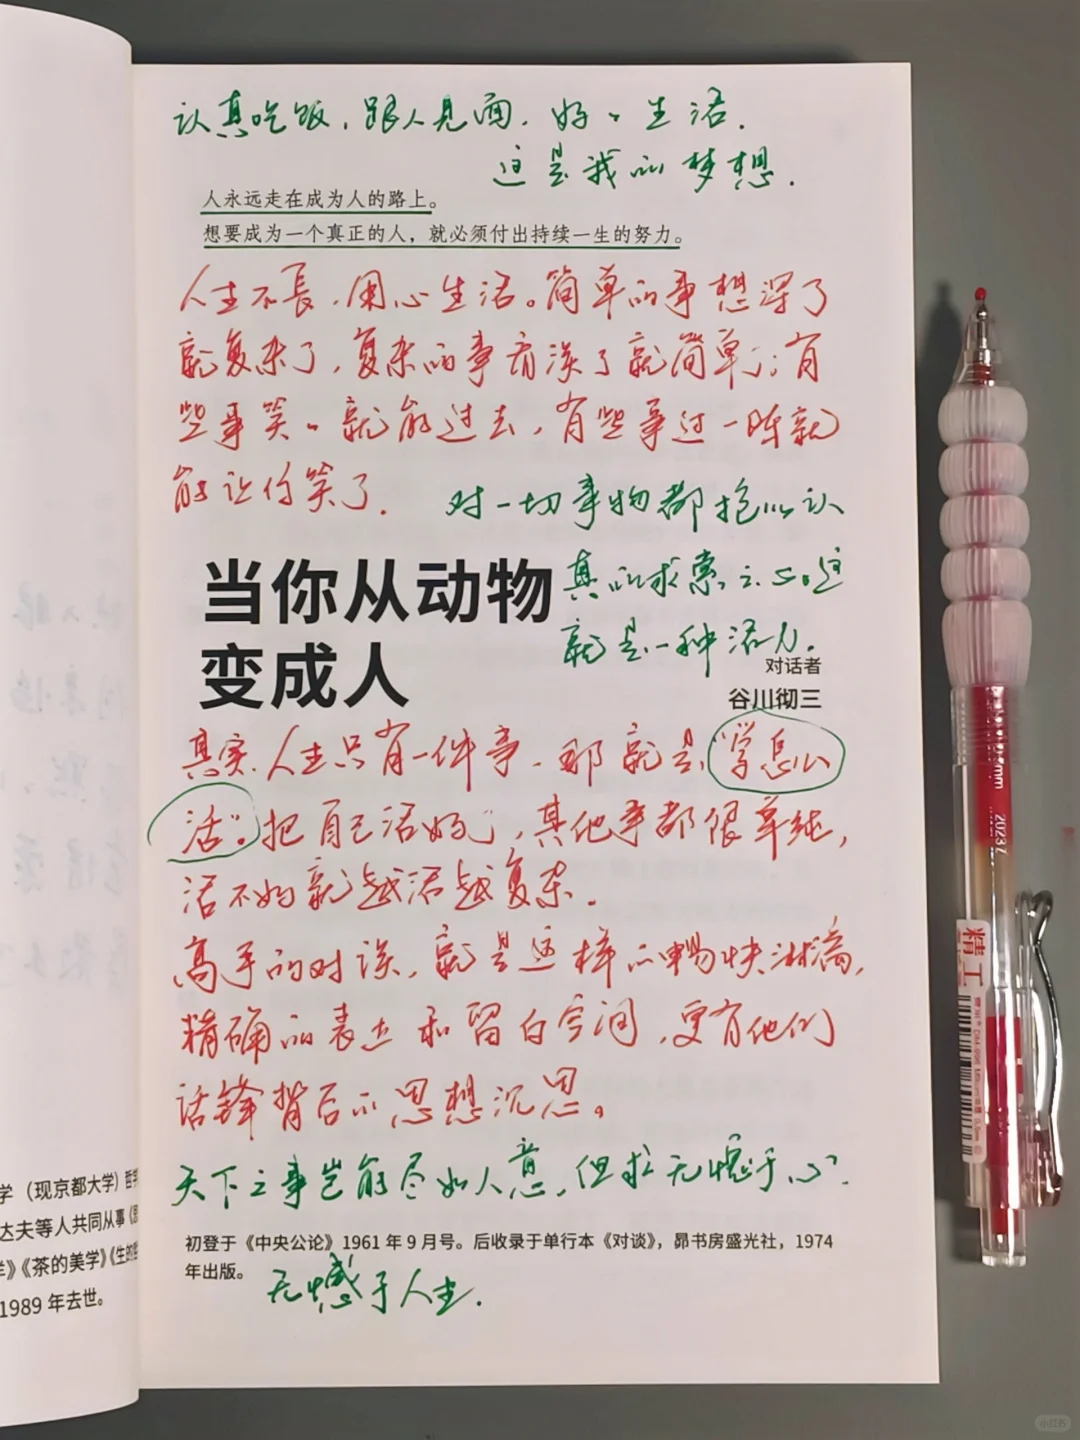 认真吃饭，跟人见面，好好生活.
这是我的梦想.
人永远走在成为人的路上。
想要成为一个真正的人，就必须付出持续一生的努力。
人生不長，用心生活。简单的事想深了
就复杂了，复杂的事看淡了就简单了；有
些事笑笑就能过去，有些事过一阵就
能让你笑了.
对一切事物都抱以认
真的求索之心。这
就是一种活力.
当你从动物
变成人
对话者
谷川彻三
其实，人生只有一件事，那就是，“学怎么
活”。把自己活好了，其他事都很单纯，
活不好就越活越复杂.
高手的对谈，就是这样的畅快淋漓，
精确的表达和留白空间，更有他们
话锋背后的思想沉思。
天下之事岂能尽如人意，但求无愧于心.
初登于《中央公论》1961 年 9 月号。后收录于单行本《对谈》，昴书房盛光社，1974
年出版。
无憾于人生.
学（现京都大学）哲
达夫等人共同从事《思
《茶的美学》《生的
1989 年去世。
精工
2023
小红书